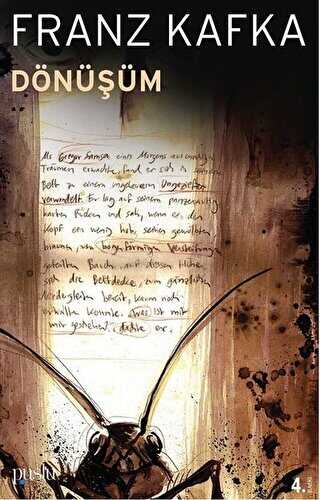 FRANZ KAFKA
DÖNÜŞÜM
Als Gregor Samsa eines Morgens aus
Träumen erwachte, fand er sich in seinem
Bett zu einem ungeheueren Ungeziefer
verwandelt. Er lag auf seinem panzerartig
harten Rücken und sah, wenn er den
Kopf ein wenig hob, seinen gewölbten
braunen, von bogenförmigen Versteifungen
geteilten Bauch, auf dessen Höhe
sich die Bettdecke, zum gänzlichen
Niedergleiten bereit, kaum noch
erhalten konnte. Was ist mit
mir geschehen, dachte er.
puslu
4.